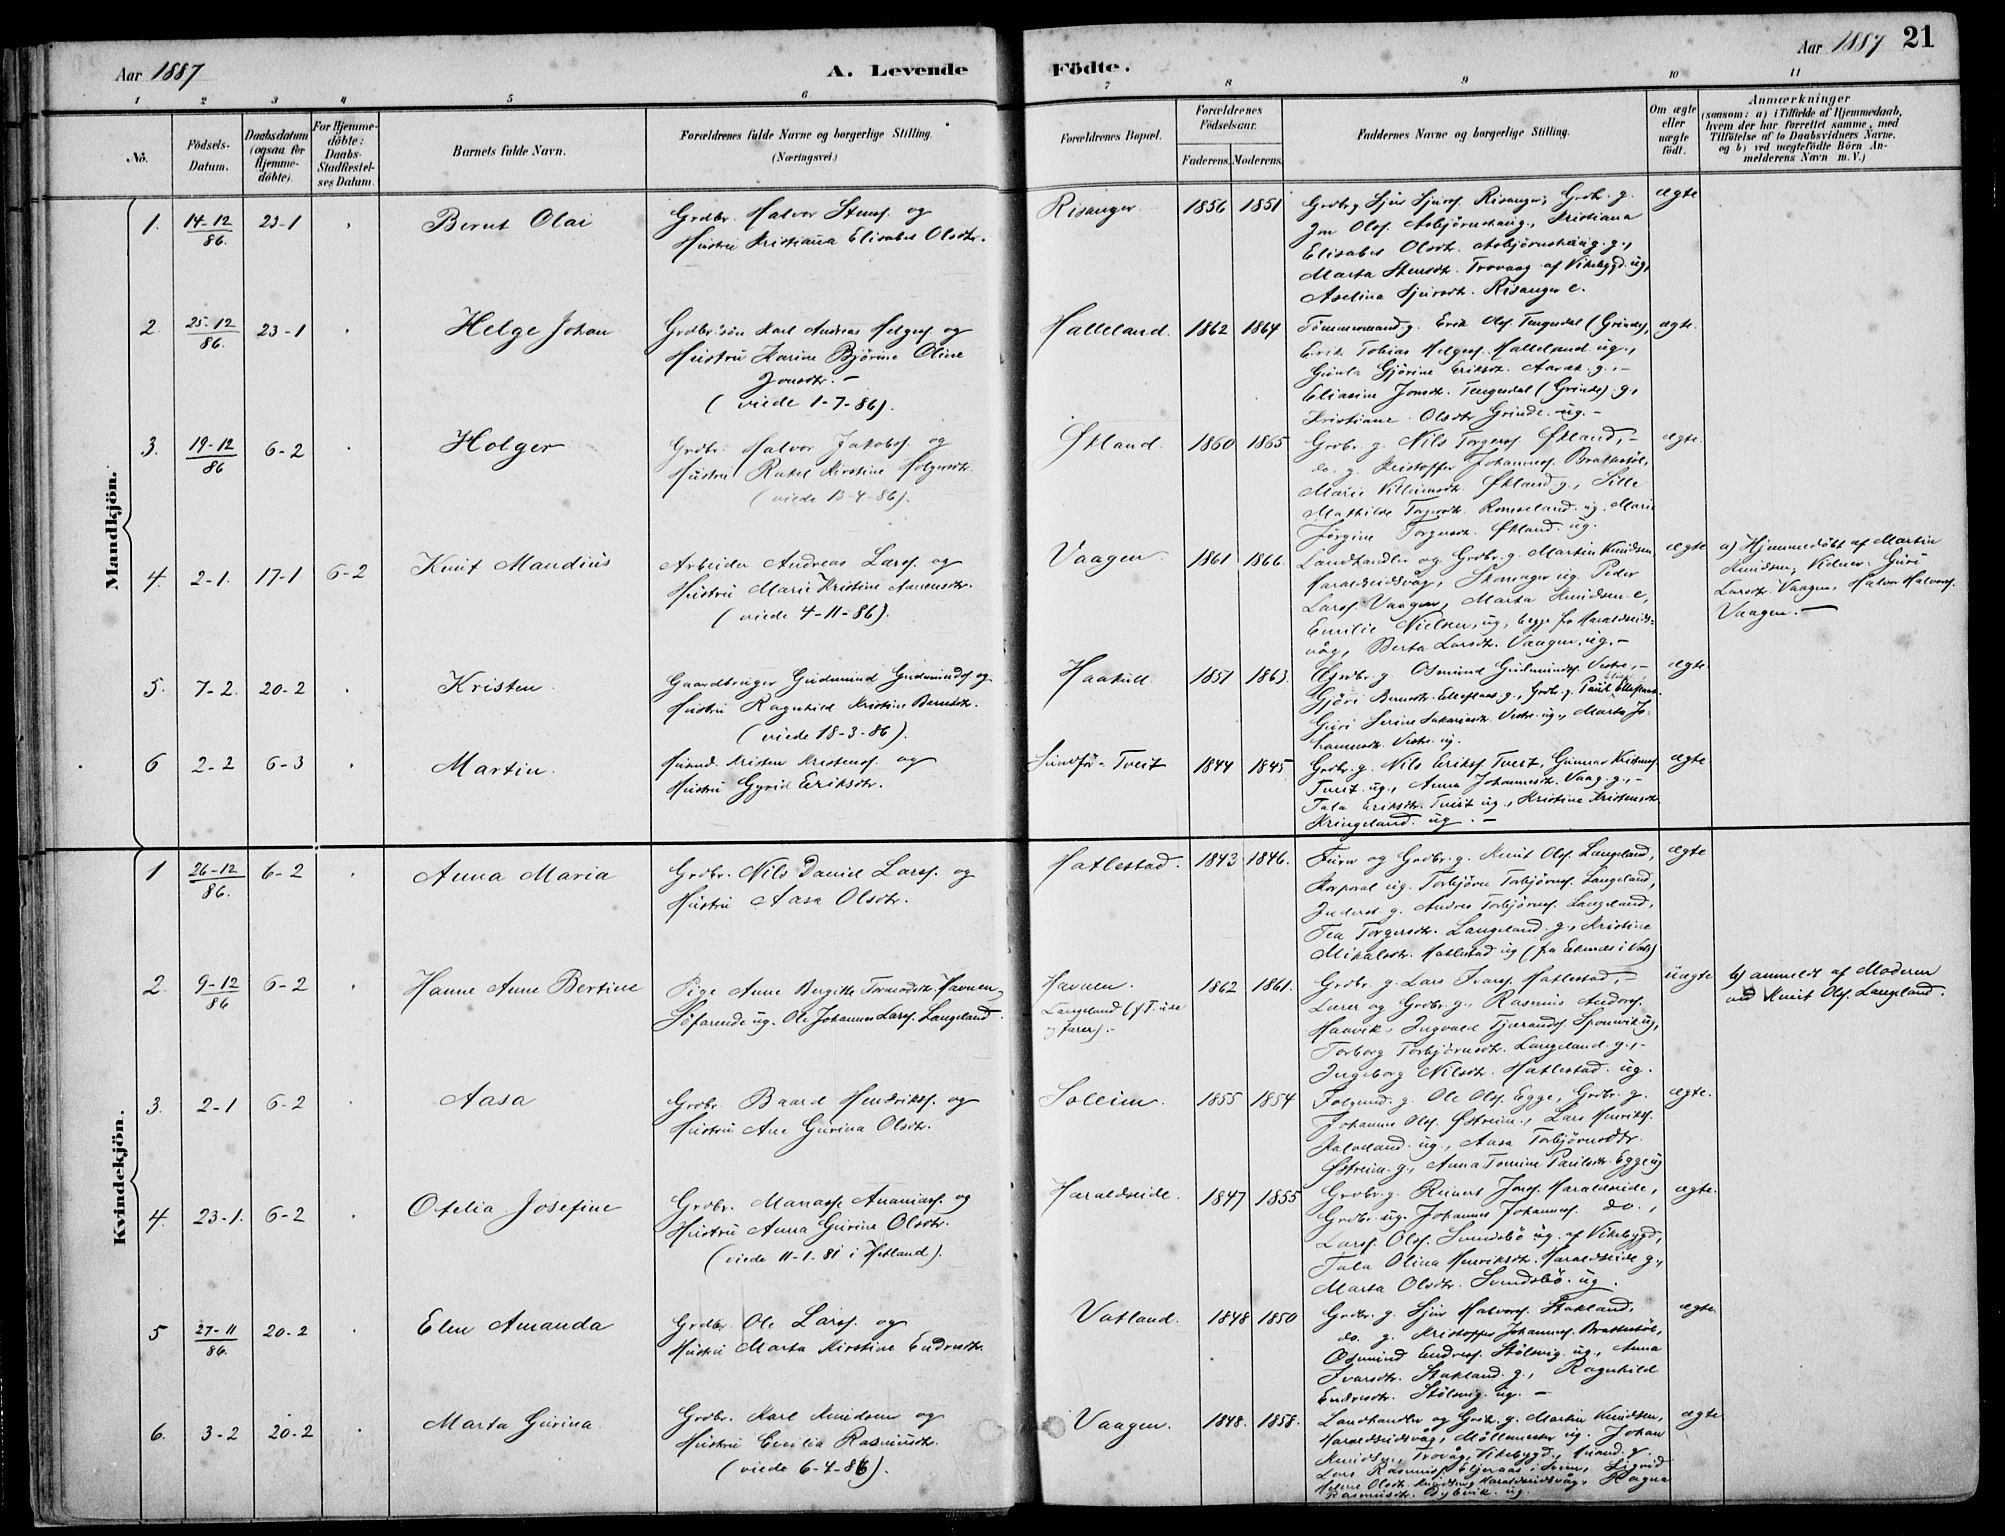 Aar 1887
A. Levende
Födte.
Aar 1887
21
1 2 3 4 5 6 7 8 9 10 11
No.
Födsels-Datum.
Daabsdatum (ogsaa for Hjemme-döbte).
For Hjemme-döbte: Daabs-Stadfæstel-ses Datum.
Barnets fulde Navn.
Forældrenes fulde Navne og borgerlige Stilling.
(Næringsvei.)
Forældrenes Bopæl.
Forældrenes Födselsaar.
Faderens.
Moderens.
Faddernes Navne og borgerlige Stilling.
Om ægte eller uægte födt.
Anmærkninger
(saasom: a) i Tilfælde af Hjemmedaab,
hvem der har forrettet samme, med
Tilföielse af to Daabsvidners Navne,
og b) ved uægtefödte Börn An-
melderens Navn m. V.)
Mandkjön.
1. 14-12/86. 23-1 Bernt Olai
Grdbr. Halvor Stensf. og
Hustru Kristiana Elisabet Olsdtr.
Risanger 1856 1851
Grdbr. g. Sjur Sjursf. Risanger, Grdb. g.
Jon Olsf. Asbjörnshaug, Kristiana
Elisabet Olsdtr. Asbjörnshaug. g.,
Marta Stensdtr. Trovaag af Vikebygd. ug,
Aselina Sjursdtr. Risanger e.
ægte
2. 25-12/86. 23-1 Helge Johan
Grdbr.sön Karl Andreas Helgesf. og
Hustru Karine Bjørine Oline
Jonsdtr. -
(viede 1-7-86).
Halleland. 1862 1864
Tömmermand g. Erik Olsf. Tengesdal (Grinde),
Erik Tobias Helgesf. Halleland ug.,
Gunla Gjörine Eriksdtr. g., -
Eliasine Jonsdtr. Tengesdal (Grinde) g.,
Kristiane Olsdtr. Grinde. ug. -
ægte.
3. 19-12/86 6-2 Holger
Grdbr. Halvor Jakobsf. og
Hustru Rakel Kirstine Holgersdtr.
(viede 13-4-86).
Økland. 1860 1865
Grdbr. g. Nils Torgersf. Økland, -
do. g. Kristoffer Johannesf. Brattestöl,
Marie Villumsdtr. Økland g., Sille
Mathilde Torgersdtr. ug. Marie
Jörgine Torgersdtr. Økland. ug.
ægte.
4. 2-1. 17-1 6-2 Knut Mandius
Arbeider Andreas Larsf. og
Hustru Marie Kristine
(viede 4-11-86).
Vaagen. 1861 1866.
Landhandler og Grdbr. g. Martin Knudsen,
Haraldseidsvåg, Skomager ug. Peder
Larsf. Vaagen, Marta Knudsen e,
Emilie Nielsen, ug, begge fr Haraldseids-
våg, Berta Larsdtr. Vaagen, ug. -
ægte
a) Hjemmedöbt af Martin
Knudsen, Vidner: Guri
Larsdtr. Vaagen, Halvor Halvorsf.
Vaagen. -
5. 7-2. 20-2 Kristen.
Gaardbruger Gudmund Gudmundsf og
Hustru Ragnhild Kristine Berntsdtr.
(viede 18-3-86).
Haakull. 1851 1863.
Grdbr. g. Osmund Gudmundsf. Vestre, -
Gjöri Berntsdtr. Elleflaat g., Grdbr. g. Paul Elleflaat.
Guri Serine Sakariasdtr. Vestre. ug., Marta Jo-
hannesdtr. Vestre. ug.
ægte.
6 2-2 6-3 Martin.
Husmd. Kristen Kristensf. og
Hustru Gyrid Eriksdtr.
Sundför-Tveit 1844 1845
Grdbr. g. Nils Eriksf. Tveit, Gunnar Kristensf.
Tveit. ug., Anna Johannesdtr. Vaag. g., -
Tala Eriksdtr. Tveit ug., Kristine Kristensdtr.
Kringeland. ug. -
ægte.
Kvindekjön.
1 26-12/86. 6-2 Anna Maria
Grdbr. Nils Daniel Larsf. og
Hustru Aasa Olsdtr.
Hatlestad. 1843 1846.
Furer og Grdbr. g. Knut Olsf. Langeland,
Korporal ug. Torbjörn Torbjörnsf. Langeland,
Inderst g. Andres Torbjörnsf. Langeland,
Tea Torgersdtr. Langeland. g., Kristine
Mikalsdtr. Hatlestad ug (fra i Vats)
ægte
2. 9-12/86 6-2 Hanne Anne Bertine
Pige Anne Bergitte Havnen,
Söfarende ug. Ole Johannes Larsf. Langeland.
Havnen.
Langeland (f. T. ude
og farer).
1862 1861.
Grdbr. g. Lars Ivarsf. Hatlestad, -
Lærer og Grdbr. g., Rasmus
Haavik, Ingvald Tjerandsf. ug,
Torborg Torbjörnsdtr. Langeland. g., -
Ingeborg Nilsdtr. Hatlestad. ug.
uægte
b) anmeldt af Moderen
ved Knut Olsf. Langeland.
3. 2-1 6-2 Aasa
Grdbr. Baard Hendriksf. og
Hustru Ane Gurina Olsdtr.
Solheim. 1855 1854
Ole Olsf. Egge, Grdbr. g.
Johannes Olsf. Østreim., Lars Henriksf.
ug., Aasa Torbjörnsdtr.
Østreim. g., Anna Tomine Paulsdtr. Egge ug
ægte.
4. 23-1. 6-2 Otelia Josefine
Grdbr. Manassf. Ananiasf. og
Hustru Anna Gurine Olsdtr.
(viede 11-1-81 i Hetland).
Haraldseide. 1847 1855
Grdbr. g. Reinert Josf. Haraldseide,
Grdbr. ug. Johannes Johannesf. do.,
Larsf. Olsf. Svendsbö ug. af Vikebygd,
Tala Olina Henriksdtr. Haraldseide g.,
Marta Olsdtr. Svendsbö. ug.
ægte.
5 27-11/86. 20-2 Elen Amanda
Grdbr. Ole Larsf. og
Hustru Marta Kirstine Endresdtr.
Vatland. 1848 1850
Grdbr. g. Sjur Halvorsf. Stakland,
do. g. Kristoffer Johannesf. Brattestöl,
Osmund Endresf. Stölsvig. ug., Anna
Ivarsdtr. Stakland. g., Ragnhild
Endresdtr. Stölsvig. ug. -
ægte.
6. 3-2 20-2 Marta Gurina.
Grdbr. Karl Knudsen og
Hustru Cecilia Rasmusdtr.
(viede 6-4-86).
Vaagen. 1848. 1858.
Landhandler og Grdb. g. Martin Knudsen,
Haraldseidsvåg, Möllemester ug. Johan
Knudsen, Trovåg, Vikebygd, Husmd. g.
Lars Rasmusf. i Seim, Sigrid
Helene Olsdtr. Knudsen, Haraldseidsvåg, Ragna
Rasmusdtr. ug.
ægte